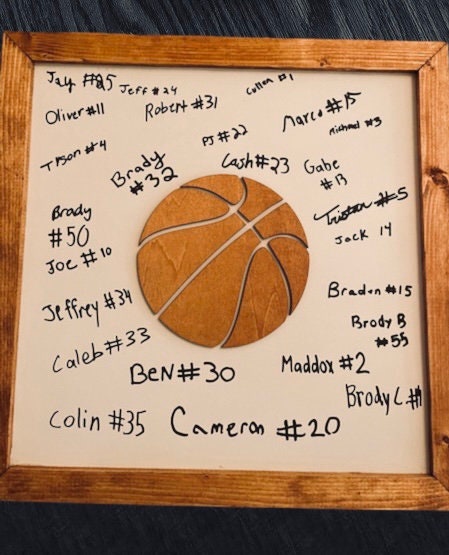 Jay #25
Jeff #24
Cullen #1
Oliver #11
Robert #31
Marco #15
Michael #3
PJ #22
Tyson #4
Brady
#32
Cash #23
Gabe
#13
Tristan #5
Brady
#50
Jack 14
Joe #10
Braden #15
Jeffrey #34
Brody B
#55
Caleb #33
BEN #30
Maddox #2
Brody C. #1
Colin #35
Cameron #20